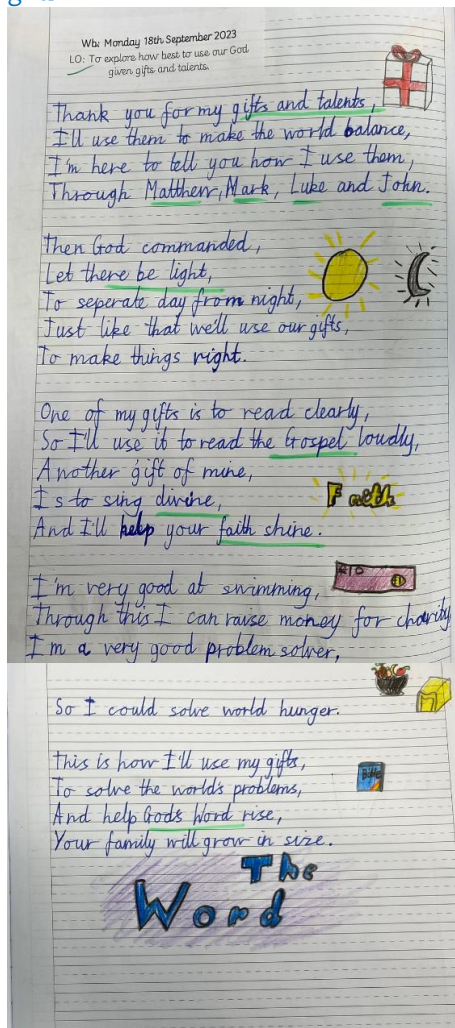 Wb: Monday 18th September 2023
LO: To explore how best to use our God
given gifts and talents.
Thank you for my gifts and talents,
I'll use them to make the world balance,
I'm here to tell you how I use them,
Through Matthew, Mark, Luke and John.
Then God commanded,
Let there be light,
To seperate day from night,
Just like that we'll use our gifts,
To make things right.
One of my gifts is to read clearly,
So I'll use it to read the Gospel loudly,
Another gift of mine,
Is to sing divine,
Faith
And I'll help your faith shine.
I'm very good at swimming,
Through this I can raise money for charity
I'm a very good problem solver,
So I could solve world hunger.
This is how I'll use my gifts,
To solve the world's problems,
Bible
And help God's Word rise,
Your family will grow in size.
The
Word